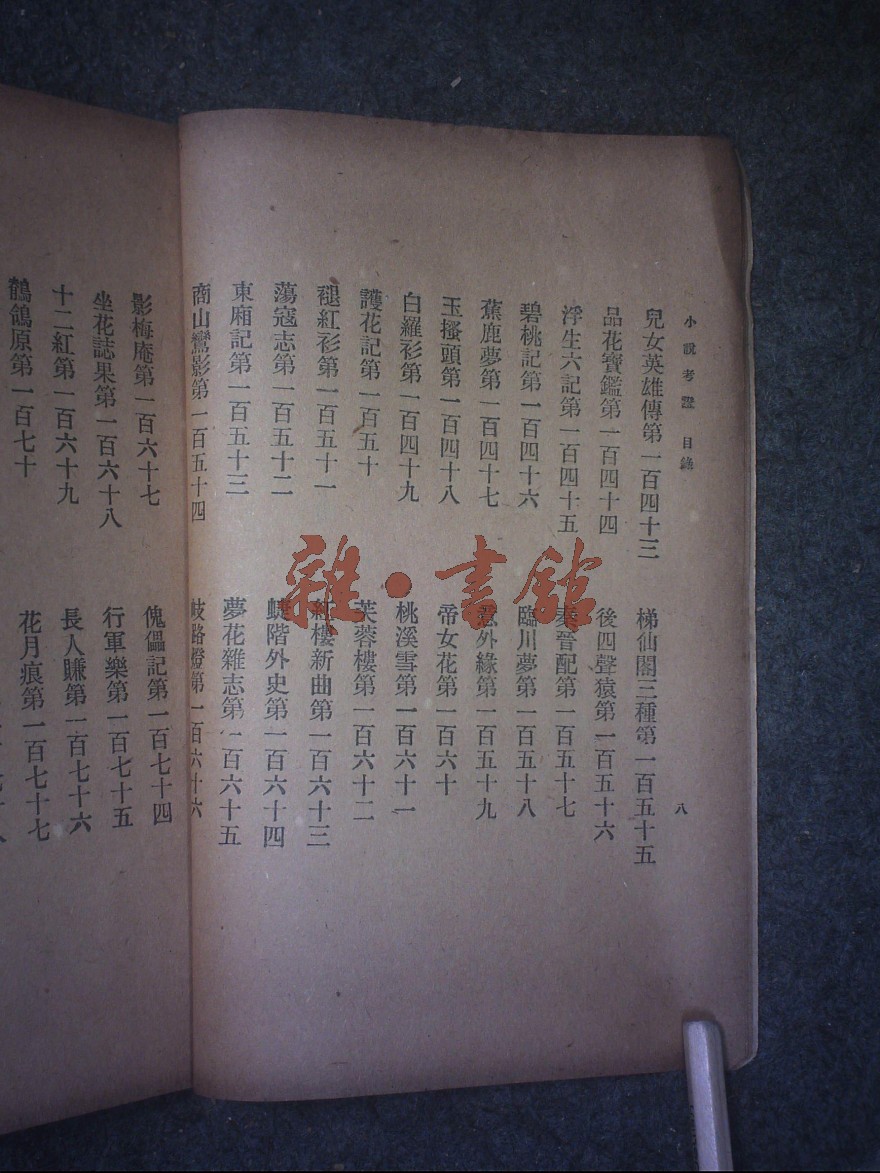 小說考證 目錄
八
兒女英雄傳第一百四十三
品花寶鑑第一百四十四
浮生六記第一百四十五
碧桃記第一百四十六
蕉鹿夢第一百四十七
玉搔頭第一百四十八
白羅衫第一百四十九
護花記第一百五十
褪紅衫第一百五十一
蕩寇志第一百五十二
東廂記第一百五十三
商山鸞影第一百五十四
梯仙閣三種第一百五十五
後四聲猿第一百五十六
秦晉配第一百五十七
臨川夢第一百五十八
意外緣第一百五十九
帝女花第一百六十
桃溪雪第一百六十一
芙蓉樓第一百六十二
紅樓新曲第一百六十三
蜨階外史第一百六十四
夢花雜志第一百六十五
歧路燈第一百六十六
影梅庵第一百六十七
坐花誌果第一百六十八
十二紅第一百六十九
鶺鴒原第一百七十
傀儡記第一百七十四
行軍樂第一百七十五
長人賺第一百七十六
花月痕第一百七十七
雜·書館